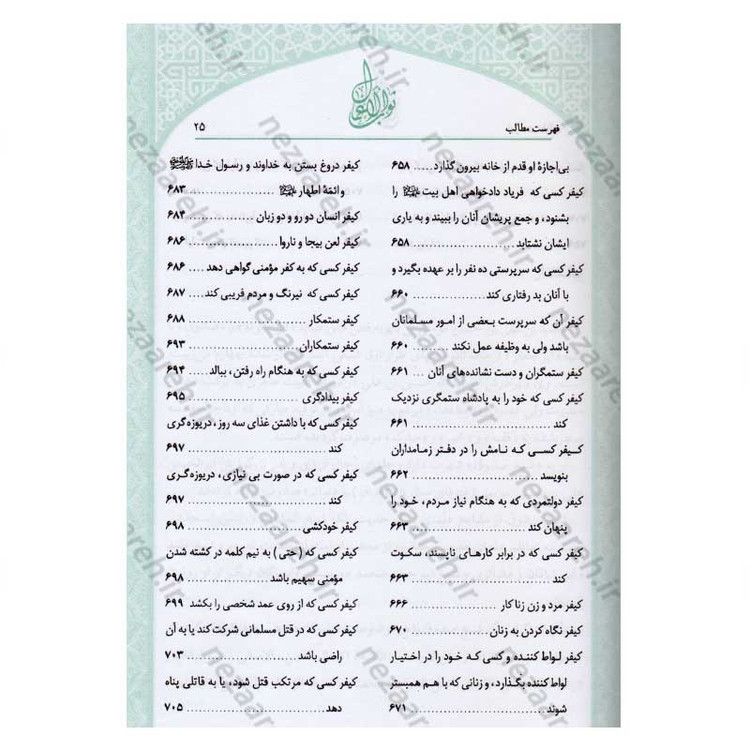 ثواب الاعمال
فهرست مطالب
۲۵
بی‌اجازهٔ او قدم از خانه بیرون گذارد..... ۶۵۸
کیفر کسی که فریاد دادخواهی اهل بیت را
بشنود، و جمع پریشان آنان را ببیند و به یاری
ایشان نشتابد ..................... ۶۵۸
کیفر کسی که سرپرستی ده نفر را بر عهده بگیرد و
با آنان بد رفتاری کند ................ ۶۶۰
کیفر آن که سرپرست بعضی از امور مسلمانان
باشد ولی به وظیفه عمل نکند ........ ۶۶۰
کیفر ستمگران و دست نشانده‌های آنان ... ۶۶۱
کیفر کسی که خود را به پادشاه ستمگری نزدیک
کند ............................ ۶۶۱
کیفر کسی که نامش را در دفتر زمامداران
بنویسد ........................ ۶۶۲
کیفر دولتمردی که به هنگام نیاز مردم، خود را
پنهان کند ...................... ۶۶۳
کیفر کسی که در برابر کارهای ناپسند، سکوت
کند ............................ ۶۶۳
کیفر مرد و زن زناکار ................ ۶۶۶
کیفر نگاه کردن به زنان .............. ۶۷۰
کیفر لواط کننده و کسی که خود را در اختیار
لواط کننده بگذارد، و زنانی که با هم همبستر
شوند .......................... ۶۷۱
کیفر دروغ بستن به خداوند و رسول خدا
و ائمهٔ اطهار ..................... ۶۸۳
کیفر انسان دو رو و دو زبان ........... ۶۸۴
کیفر لعن بیجا و ناروا ................ ۶۸۶
کیفر کسی که به کفر مؤمنی گواهی دهد ... ۶۸۶
کیفر کسی که نیرنگ و مردم فریبی کند.... ۶۸۷
کیفر ستمکار ...................... ۶۸۸
کیفر ستمکاران .................... ۶۹۳
کیفر کسی که به هنگام راه رفتن، ببالد .... ۶۹۴
کیفر بیدادگری .................... ۶۹۵
کیفر کسی که با داشتن غذای سه روز، دریوزه‌گری
کند ............................ ۶۹۷
کیفر کسی که در صورت بی نیازی، دریوزه‌گری
کند ............................ ۶۹۷
کیفر خودکشی .................... ۶۹۸
کیفر کسی که ( حتی ) به نیم کلمه در کشته شدن
مؤمنی سهیم باشد ................ ۶۹۸
کیفر کسی که از روی عمد شخصی را بکشد ۶۹۹
کیفر کسی که در قتل مسلمانی شرکت کند یا به آن
راضی باشد ...................... ۷۰۳
کیفر کسی که مرتکب قتل شود، یا به قاتلی پناه
دهد ............................ ۷۰۵
nezaareh.ir